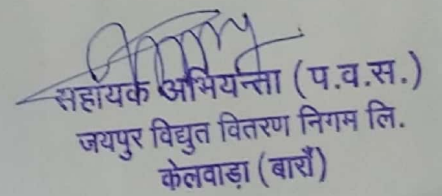 सहायक अभियन्ता (प.व.स.)
जयपुर विद्युत वितरण निगम लि.
केलवाड़ा (बाराँ)